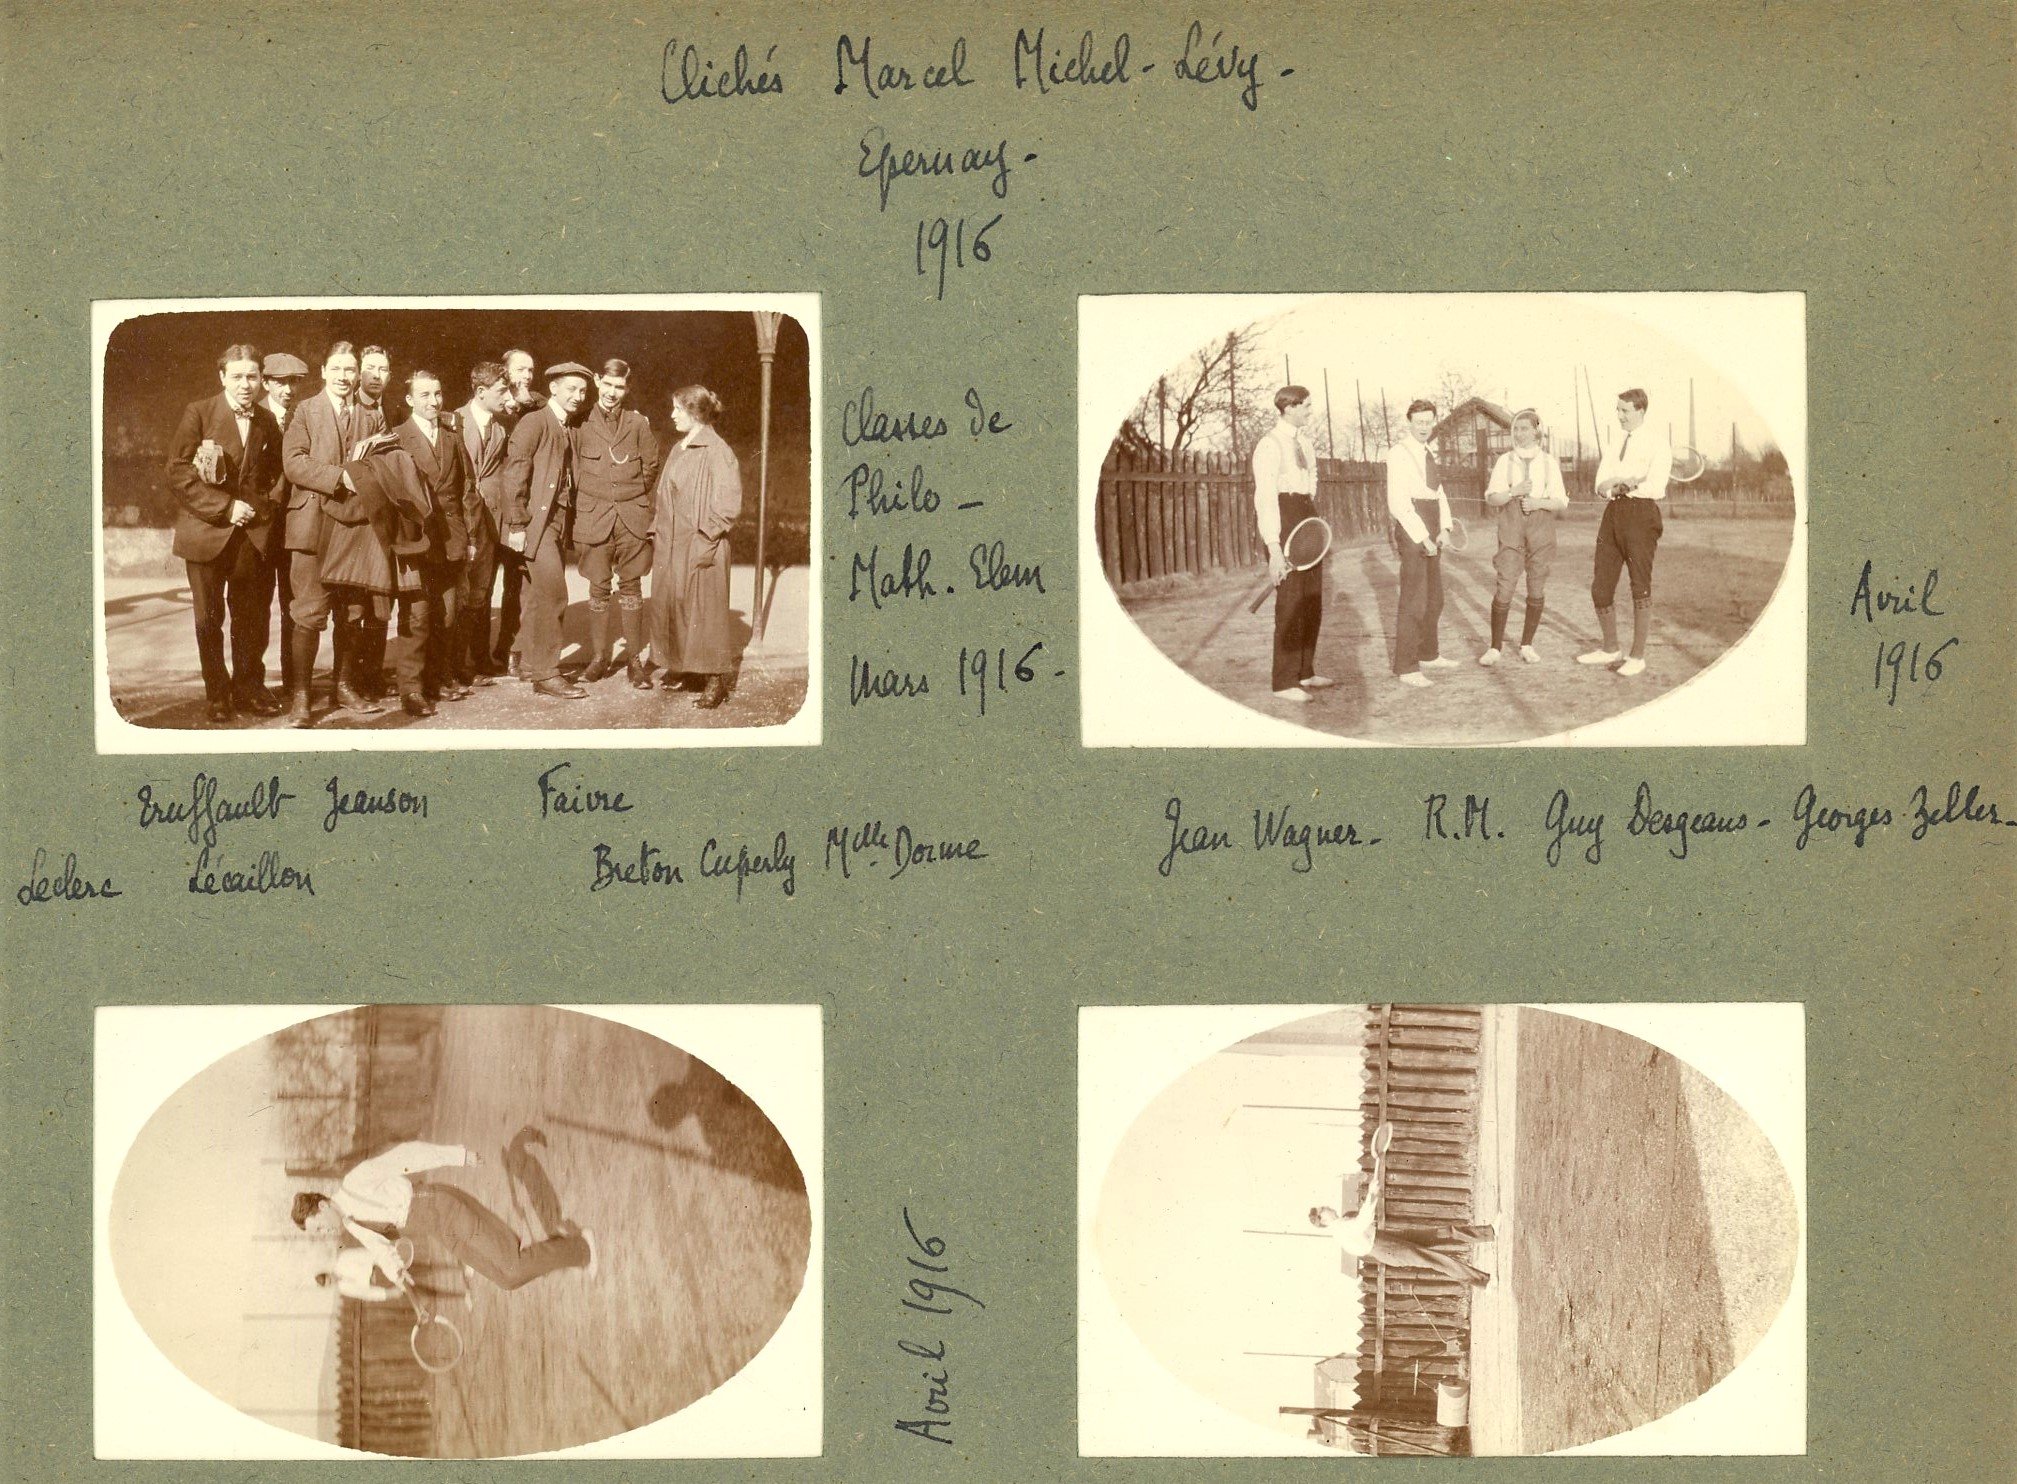 Clichés Marcel Michel-Lévy-
Epernay-
1916
Classes de
Philo -
Math. Elem
Mars 1916-
Truffault Jeanson Faivre
Leclerc Lécaillon Breton Cuperly Melle Dorme
Avril
1916
Jean Wagner- R.M. Guy Desgeans- Georges Zeller-
Avril 1916